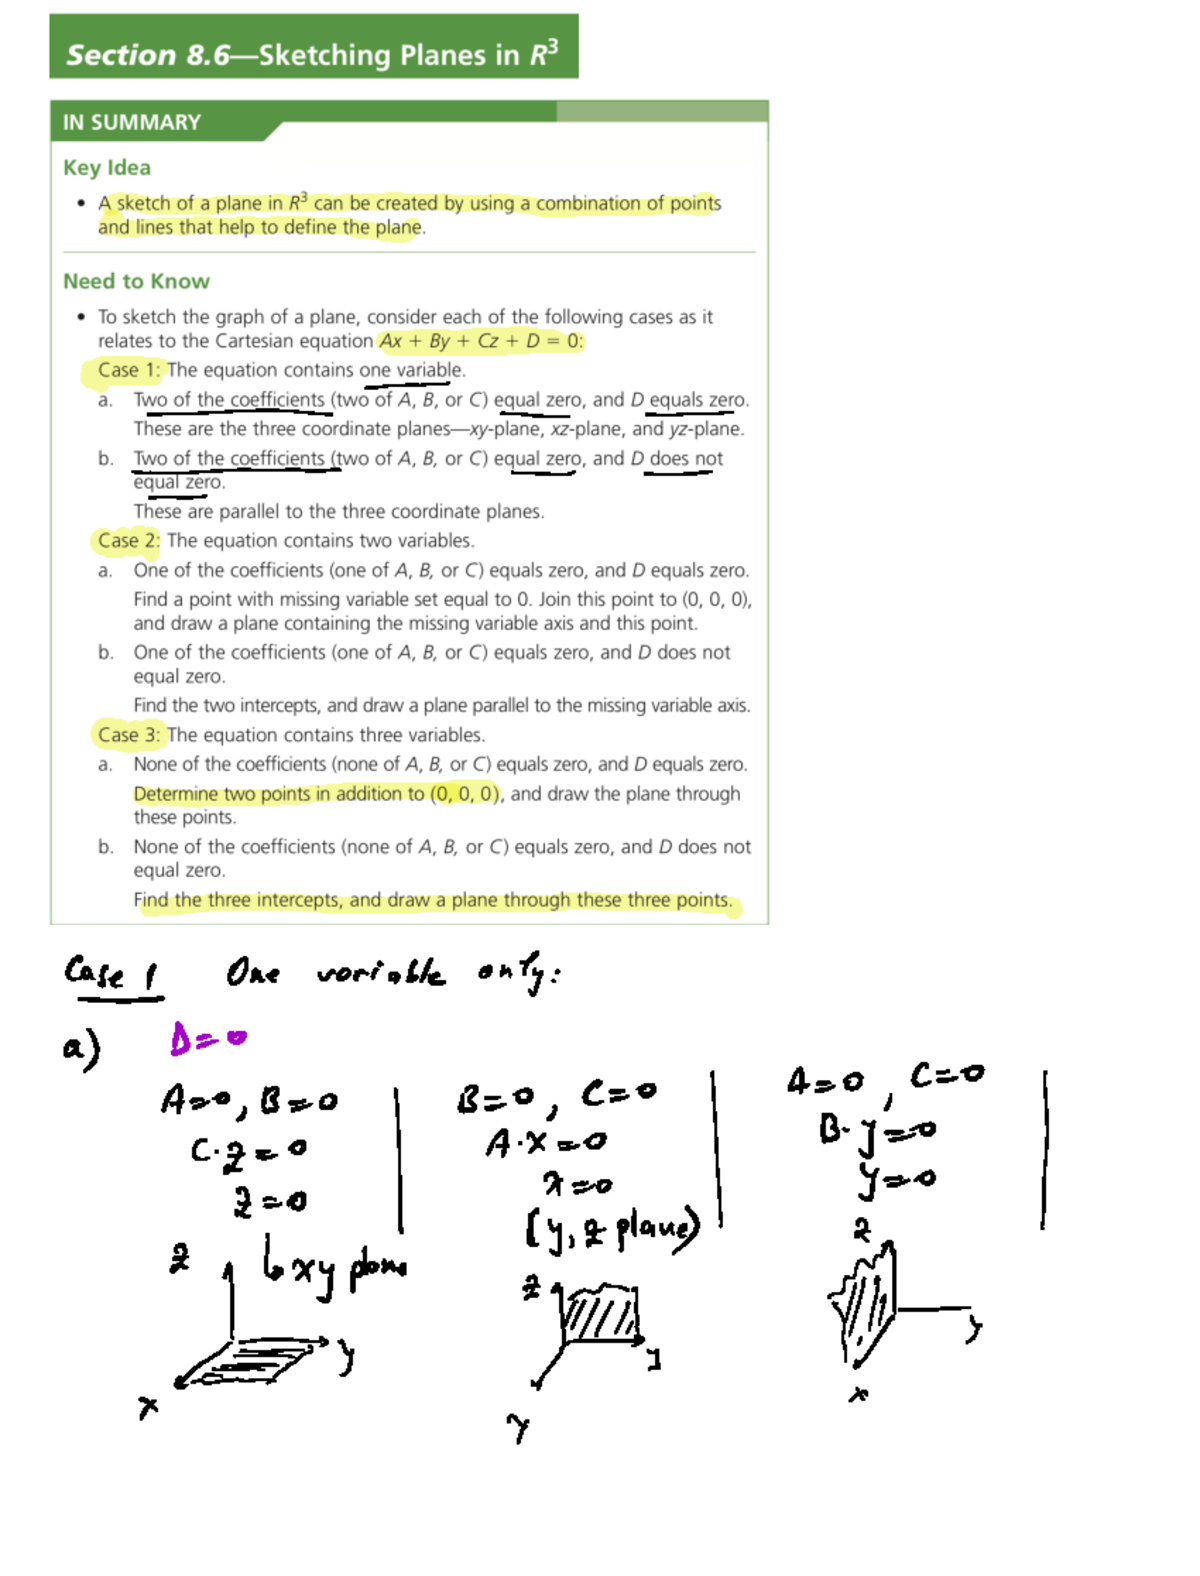 Section 8.6—Sketching Planes in R³
IN SUMMARY
Key Idea
• A sketch of a plane in R³ can be created by using a combination of points
and lines that help to define the plane.
Need to Know
• To sketch the graph of a plane, consider each of the following cases as it
relates to the Cartesian equation Ax + By + Cz + D = 0:
Case 1: The equation contains one variable.
a. Two of the coefficients (two of A, B, or C) equal zero, and D equals zero.
These are the three coordinate planes—xy-plane, xz-plane, and yz-plane.
b. Two of the coefficients (two of A, B, or C) equal zero, and D does not
equal zero.
These are parallel to the three coordinate planes.
Case 2: The equation contains two variables.
a. One of the coefficients (one of A, B, or C) equals zero, and D equals zero.
Find a point with missing variable set equal to 0. Join this point to (0, 0, 0),
and draw a plane containing the missing variable axis and this point.
b. One of the coefficients (one of A, B, or C) equals zero, and D does not
equal zero.
Find the two intercepts, and draw a plane parallel to the missing variable axis.
Case 3: The equation contains three variables.
a. None of the coefficients (none of A, B, or C) equals zero, and D equals zero.
Determine two points in addition to (0, 0, 0), and draw the plane through
these points.
b. None of the coefficients (none of A, B, or C) equals zero, and D does not
equal zero.
Find the three intercepts, and draw a plane through these three points.
Case 1 One variable only:
a) D=0
A=0, B=0
C·z=0
z=0
↳ xy plane
z
y
x
B=0, C=0
A·x=0
x=0
(y, z plane)
z
y
x
A=0, C=0
B·y=0
y=0
z
y
x